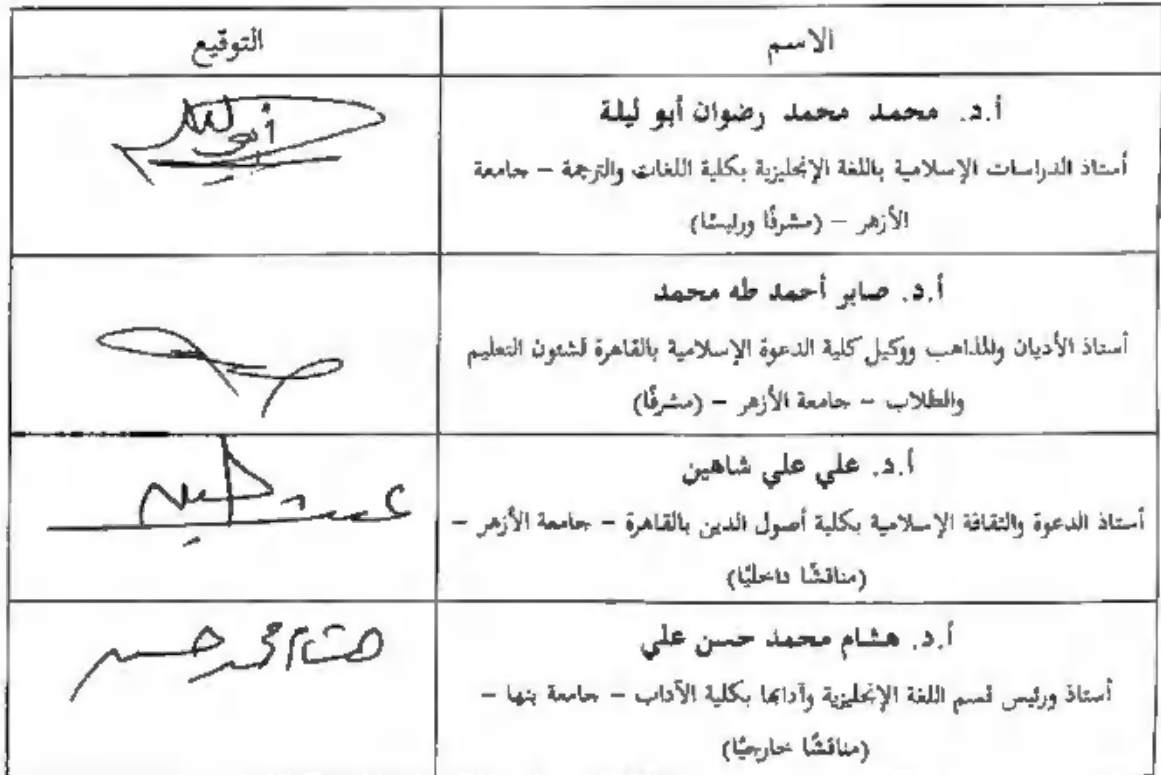 الاسم
التوقيع
أ.د. محمد محمد رضوان أبو ليلة
أستاذ الدراسات الإسلامية باللغة الإنجليزية بكلية اللغات والترجمة – جامعة
الأزهر – (مشرفًا ورئيسًا)
أ.د. صابر أحمد طه محمد
أستاذ الأديان والمذاهب ووكيل كلية الدعوة الإسلامية بالقاهرة لشئون التعليم
والطلاب – جامعة الأزهر – (مشرفًا)
أ.د. علي علي شاهين
أستاذ الدعوة والثقافة الإسلامية بكلية أصول الدين بالقاهرة – جامعة الأزهر –
(مناقشًا داخليًا)
أ.د. هشام محمد حسن علي
هشام محمد حسن
أستاذ ورئيس قسم اللغة الإنجليزية وآدابها بكلية الآداب – جامعة بنها –
(مناقشًا خارجيًا)